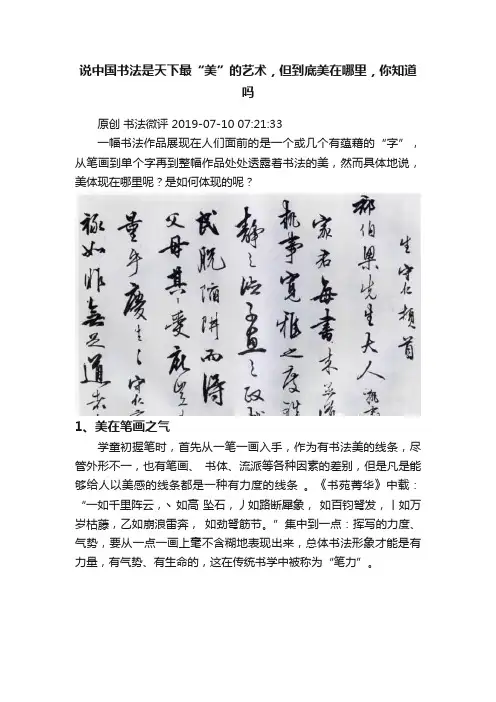 说中国书法是天下最“美”的艺术，但到底美在哪里，你知道
吗
原创 书法微评 2019-07-10 07:21:33
一幅书法作品展现在人们面前的是一个或几个有蕴藉的“字”，
从笔画到单个字再到整幅作品处处透露着书法的美，然而具体地说，
美体现在哪里呢？是如何体现的呢？
生守仁頓首
郝伯梁先生大人
家君每書來
執事寬雅之度
靜之治子惠之政
民脫陷阱而得
父母其受庇
量乎慶生守仁
祿如昨無足道
1、美在笔画之气
学童初握笔时，首先从一笔一画入手，作为有书法美的线条，尽
管外形不一，也有笔画、 书体、流派等各种因素的差别，但是凡是能
够给人以美感的线条都是一种有力度的线条 。《书苑菁华》中载：
“一如千里阵云，丶如高 坠石，丿如路断犀象， 如百钧弩发，丨如万
岁枯藤，乙如崩浪雷奔， 如劲弩筋节。”集中到一点：挥写的力度、
气势，要从一点一画上毫不含糊地表现出来，总体书法形象才能是有
力量，有气势、有生命的，这在传统书学中被称为“笔力”。